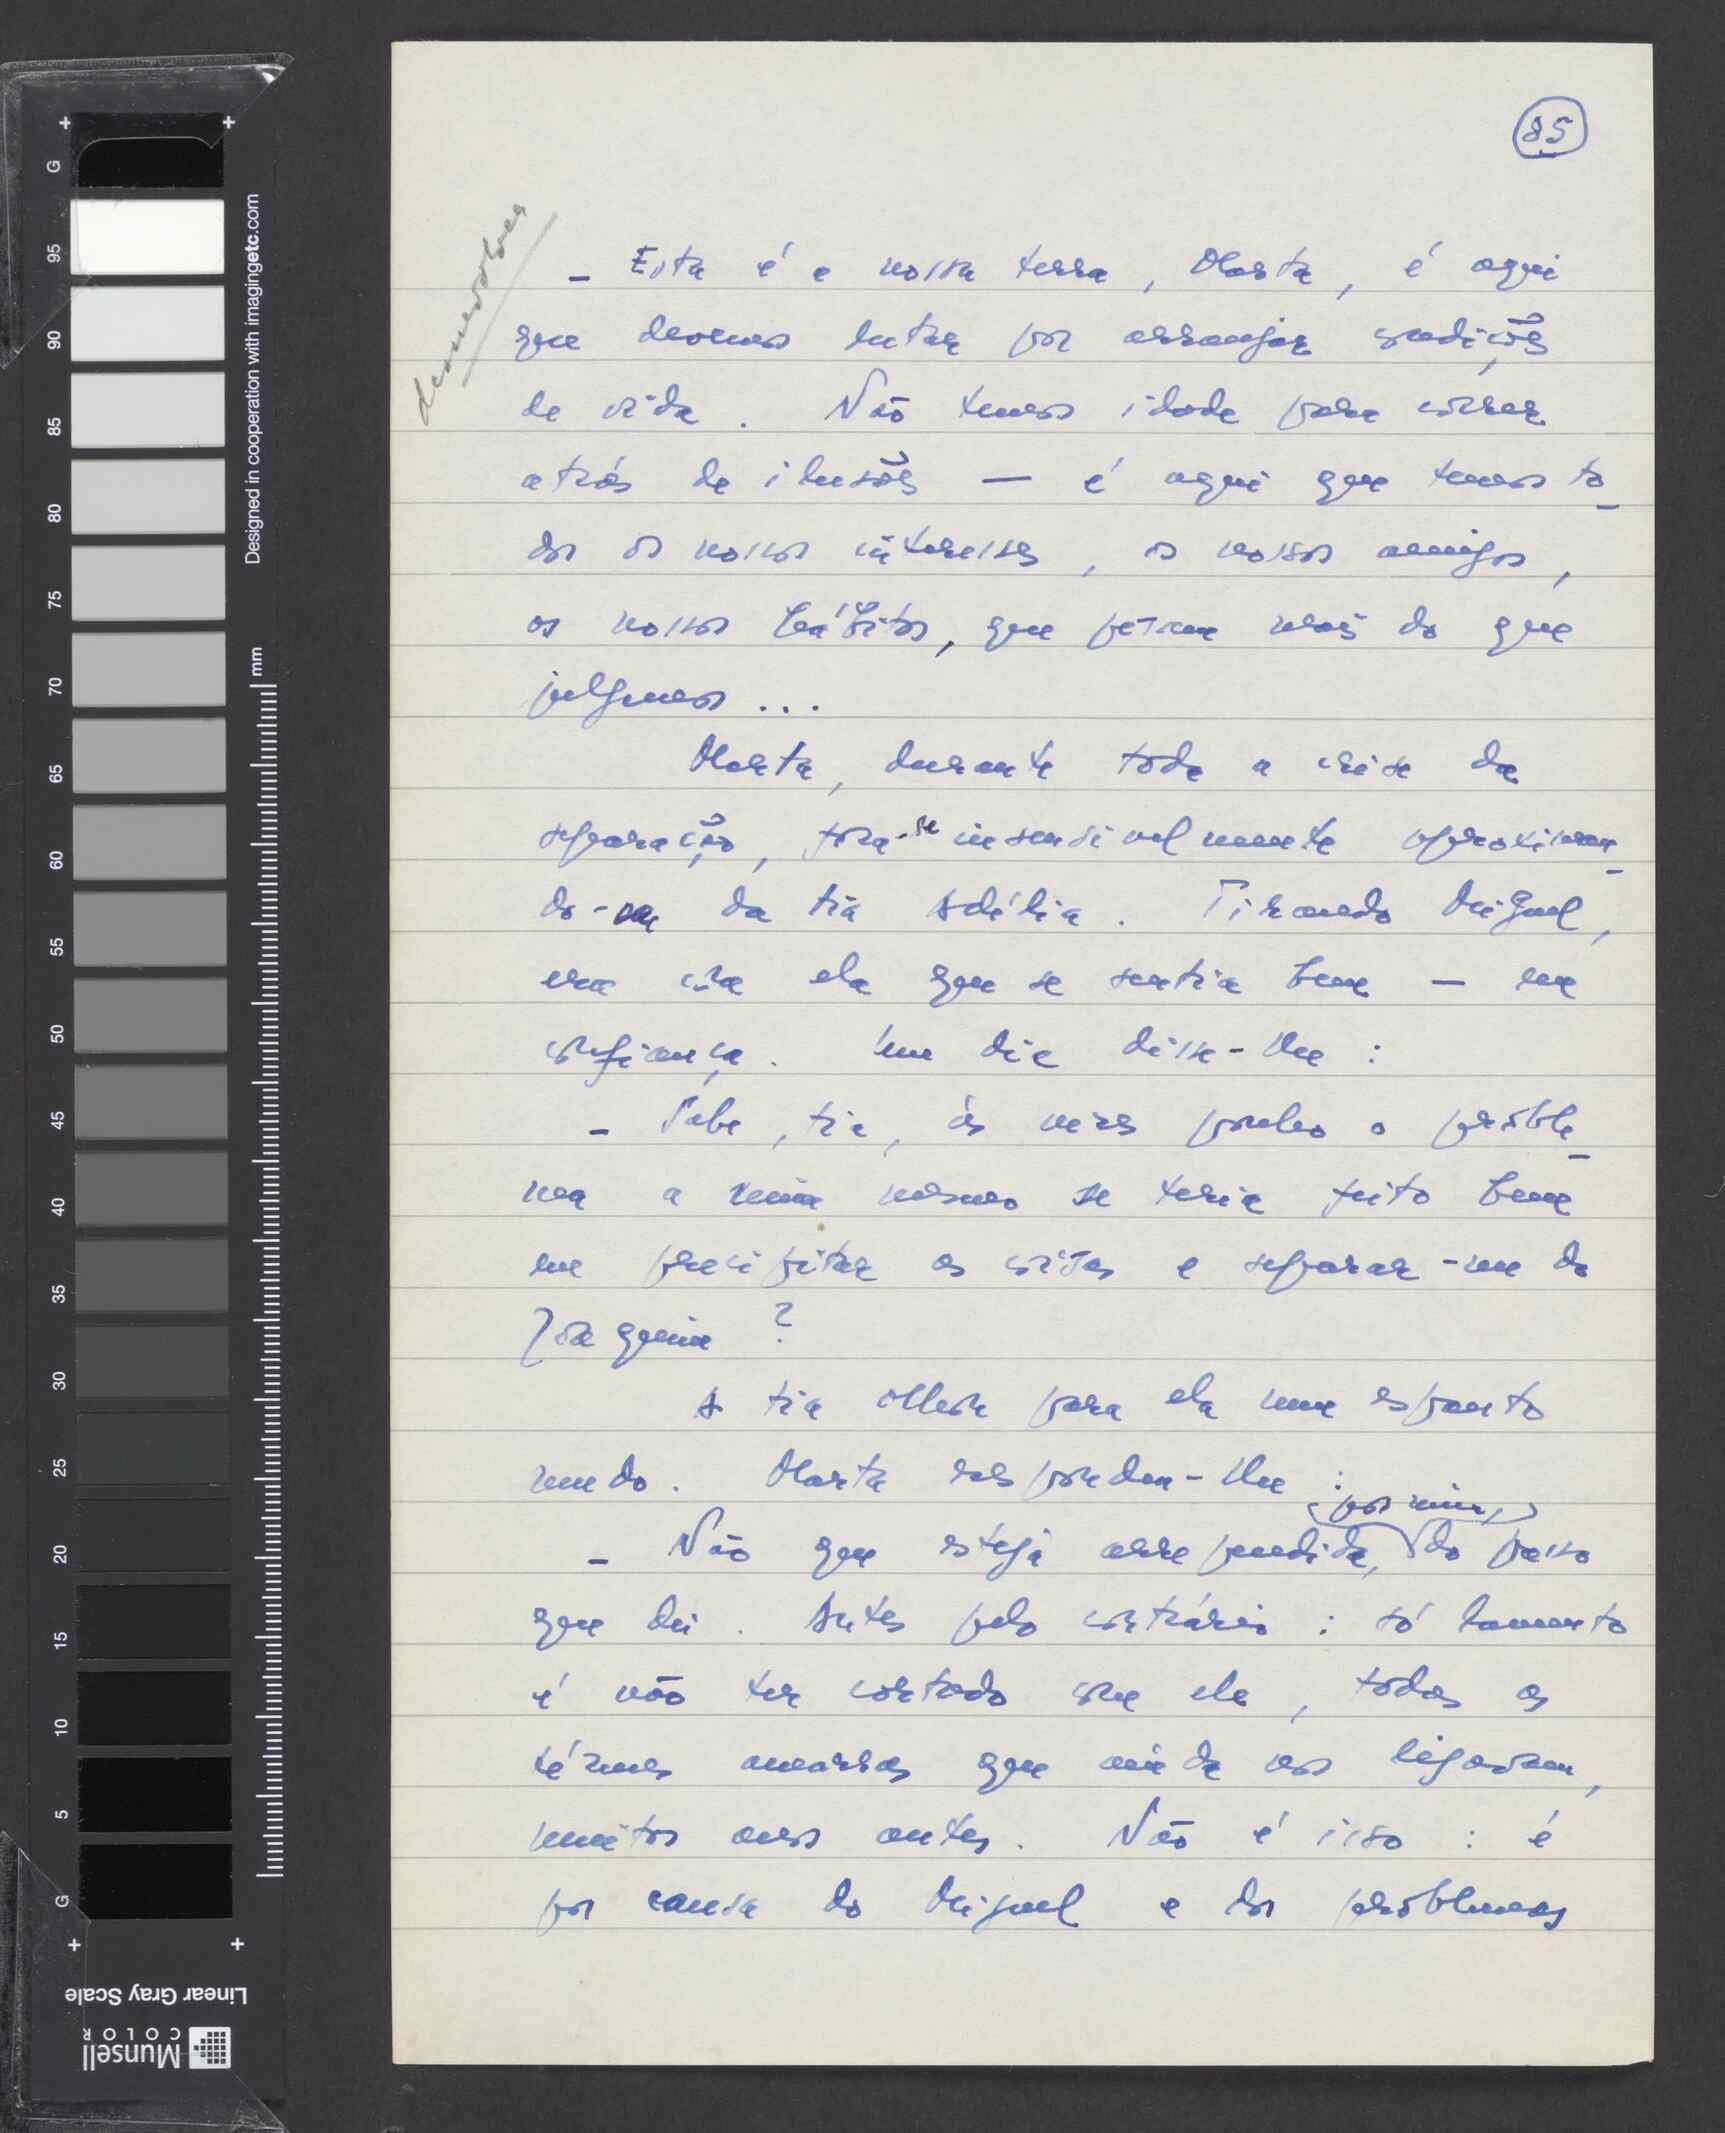 85
desenvolver
– Esta é a nossa terra, Marta, é aqui
que devemos lutar por arranjar condições
de vida. Não temos idade para correr
atrás de ilusões — é aqui que temos to-
dos os nossos interesses, os nossos amigos,
os nossos hábitos, que pesam mais do que
julgamos...
Marta, durante toda a crise da
separação, fora-se insensivelmente aproximan-
do-se da tia Adélia. Tirando Miguel,
era com ela que se sentia bem — em
confiança. Um dia disse-lhe:
– Sabe, tia, às vezes ponho o proble-
ma a mim mesma se teria feito bem
em precipitar as coisas e separar-me do
Joaquim?
A tia olhou para ela num espanto
mudo. Marta respondeu-lhe:
(por mim,)
– Não que esteja arrependida, do passo
que dei. Antes pelo contrário: só lamento
é não ter cortado com ele, todas as
ténues amarras que ainda nos ligavam,
muitos anos antes. Não é isso: é
por causa do Miguel e dos problemas
G
95
90
85
80
75
70
65
60
55
50
45
40
35
30
25
20
15
10
5
G
mm
Designed in cooperation with imagingetc.com
Linear Gray Scale
Munsell
COLOR